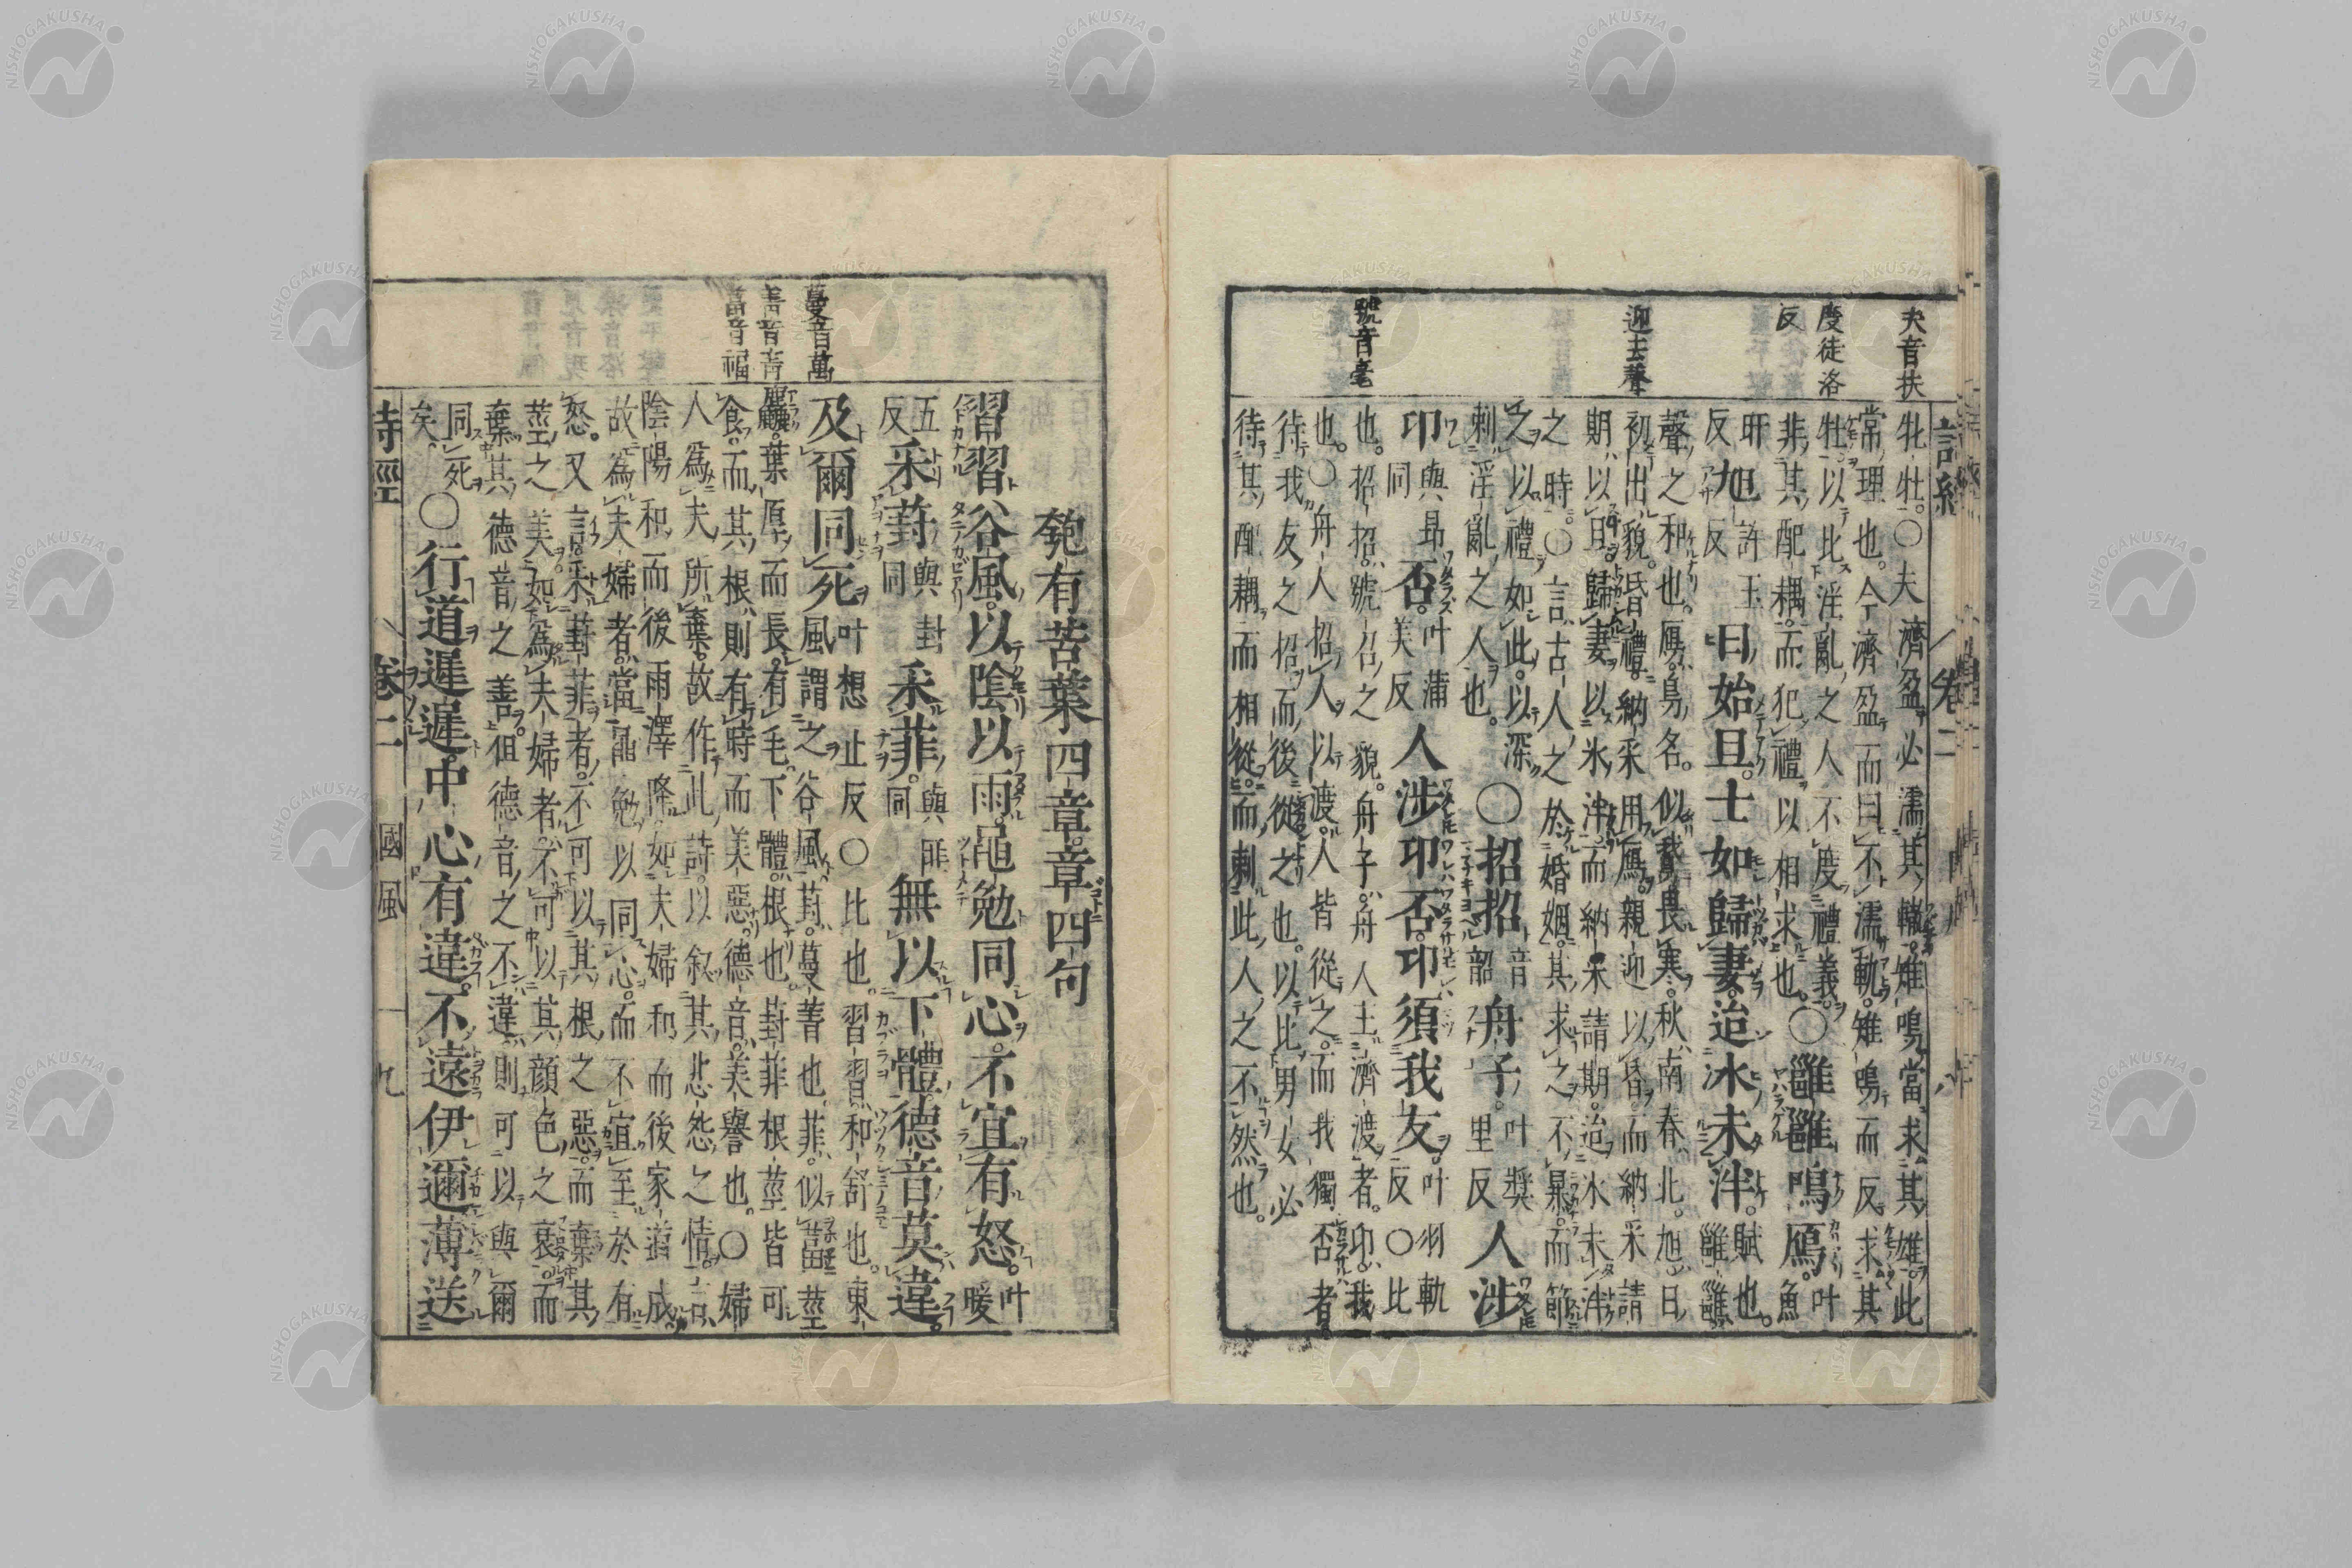 夫音扶
度徒洛
反
迎去聲
號音毫
詩經 卷二 八
牝牡。○夫濟盈必濡其轍。雉鳴當求其雄。此
常理也。今濟盈而曰不濡軌。雉鳴而反求其
牡。以比淫亂之人不度禮義。
非其配耦。而犯禮以相求也。○雝雝鳴鴈。叶魚
旰反旭許玉反日始旦。士如歸妻。迨冰未泮。賦也。雝雝
聲之和也。鴈。鳥名。似鵝畏寒。秋南春北。旭。日
初出貌。昏禮。納采用鴈。親迎以昏。而納采請
期以旦。歸妻以冰泮。而納采請期。迨冰未泮
之時。○言古人之於婚姻。其求之不暴。而節
之以禮如此。以深
刺淫亂之人也。○招招音韶舟子。叶獎里反人涉
卬與昂同否。叶蒲美反人涉卬否。卬須我友。叶羽軌反○比
也。招招。號召之貌。舟子。舟人主濟渡者。卬。我
也。○舟人招人以渡。人皆從之。而我獨否者。
待我友之招。而後從之也。以比男女必
待其配耦而相從。而刺此人之不然也。
蔓音萬
菁音青
葍音福
匏有苦葉四章。章四句
習習谷風。以陰以雨。黽勉同心。不宜有怒。叶暖
五反采葑與封同采菲。與匪同無以下體。德音莫違。
及爾同死。叶想止反○比也。習習。和舒也。東
風謂之谷風。葑。蔓菁也。菲。似葍。莖
麤葉厚而長有毛。下體。根也。葑菲根莖皆可
食。而其根則有時而美惡。德音。美譽也。○婦
人為夫所棄。故作此詩。以敘其悲怨之情。言
陰陽和而後雨澤降。如夫婦和而後家道成。
故為夫婦者。當黽勉以同心。而不宜至於有
怒。又言采葑菲者。不可以其根之惡。而棄其
莖之美。如為夫婦者。不可以其顏色之衰。而
棄其德音之善。但德音之不違。則可以與爾
同死矣。○行道遲遲。中心有違。不遠伊邇。薄送
詩經 卷二 國風 九